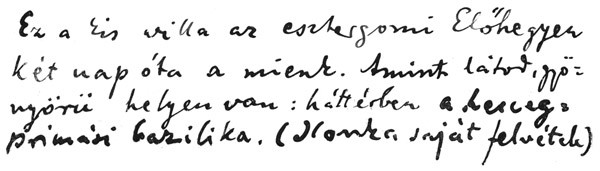 Ez a kis villa az esztergomi Előhegyen
két nap óta a mienk. Amint látod, gyö=
nyörü helyen van: háttérben a herceg=
primási bazilika. (Ilonka saját felvétele)